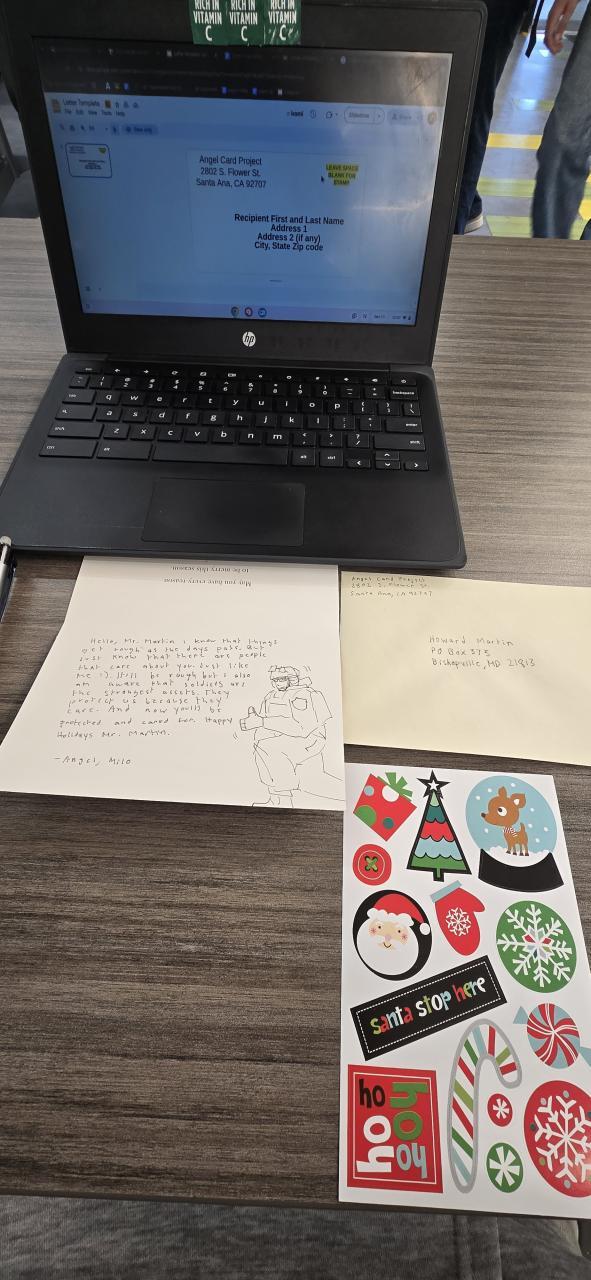 RICH IN RICH IN RICH IN
VITAMIN VITAMIN VITAMIN
C C C
Letter Template
File Edit View Tools Help
Slideshow
Share
View only
Angel Card Project
2802 S. Flower St.
Santa Ana, CA 92707
LEAVE SPACE
BLANK FOR
STAMP
Recipient First and Last Name
Address 1
Address 2 (if any)
City, State Zip code
hp
q w e r t y u i o p
a s d f g h j k l
z x c v b n m
alt ctrl alt ctrl
May you have every reason
to be merry this season.
Hello, Mr. Martin i know that things
get rough as the days pass. But
Just know that there are people
that care about you Just like
me :). It'll be rough but i also
am aware that soldiers are
the strongest assets. They
protect us because they
care. And now you'll be
protected and cared for. Happy
Holidays Mr. Martin.
-Angel, Milo
Angel Card Project
2802 S. Flower St.
Santa Ana, CA 92707
Howard Martin
PO Box 375
Bishopville, MD 21813
santa stop here
ho
ho
ho
hoy